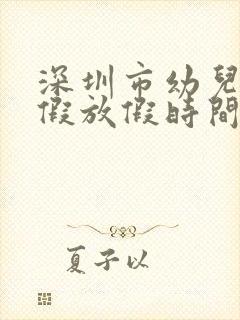 深圳市幼兒
假放假時間
夏子以